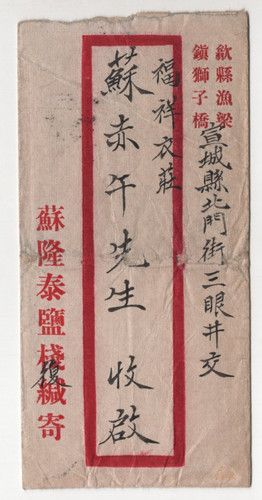 歙縣漁梁
鎮獅子橋
宣城縣北門街三眼井交
福祥衣莊
蘇赤午先生 收啟
蘇隆泰鹽棧緘寄